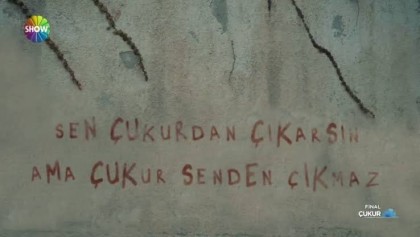 SHOW
SEN ÇUKURDAN ÇIKARSIN
AMA ÇUKUR SENDEN ÇIKMAZ
FİNAL
ÇUKUR